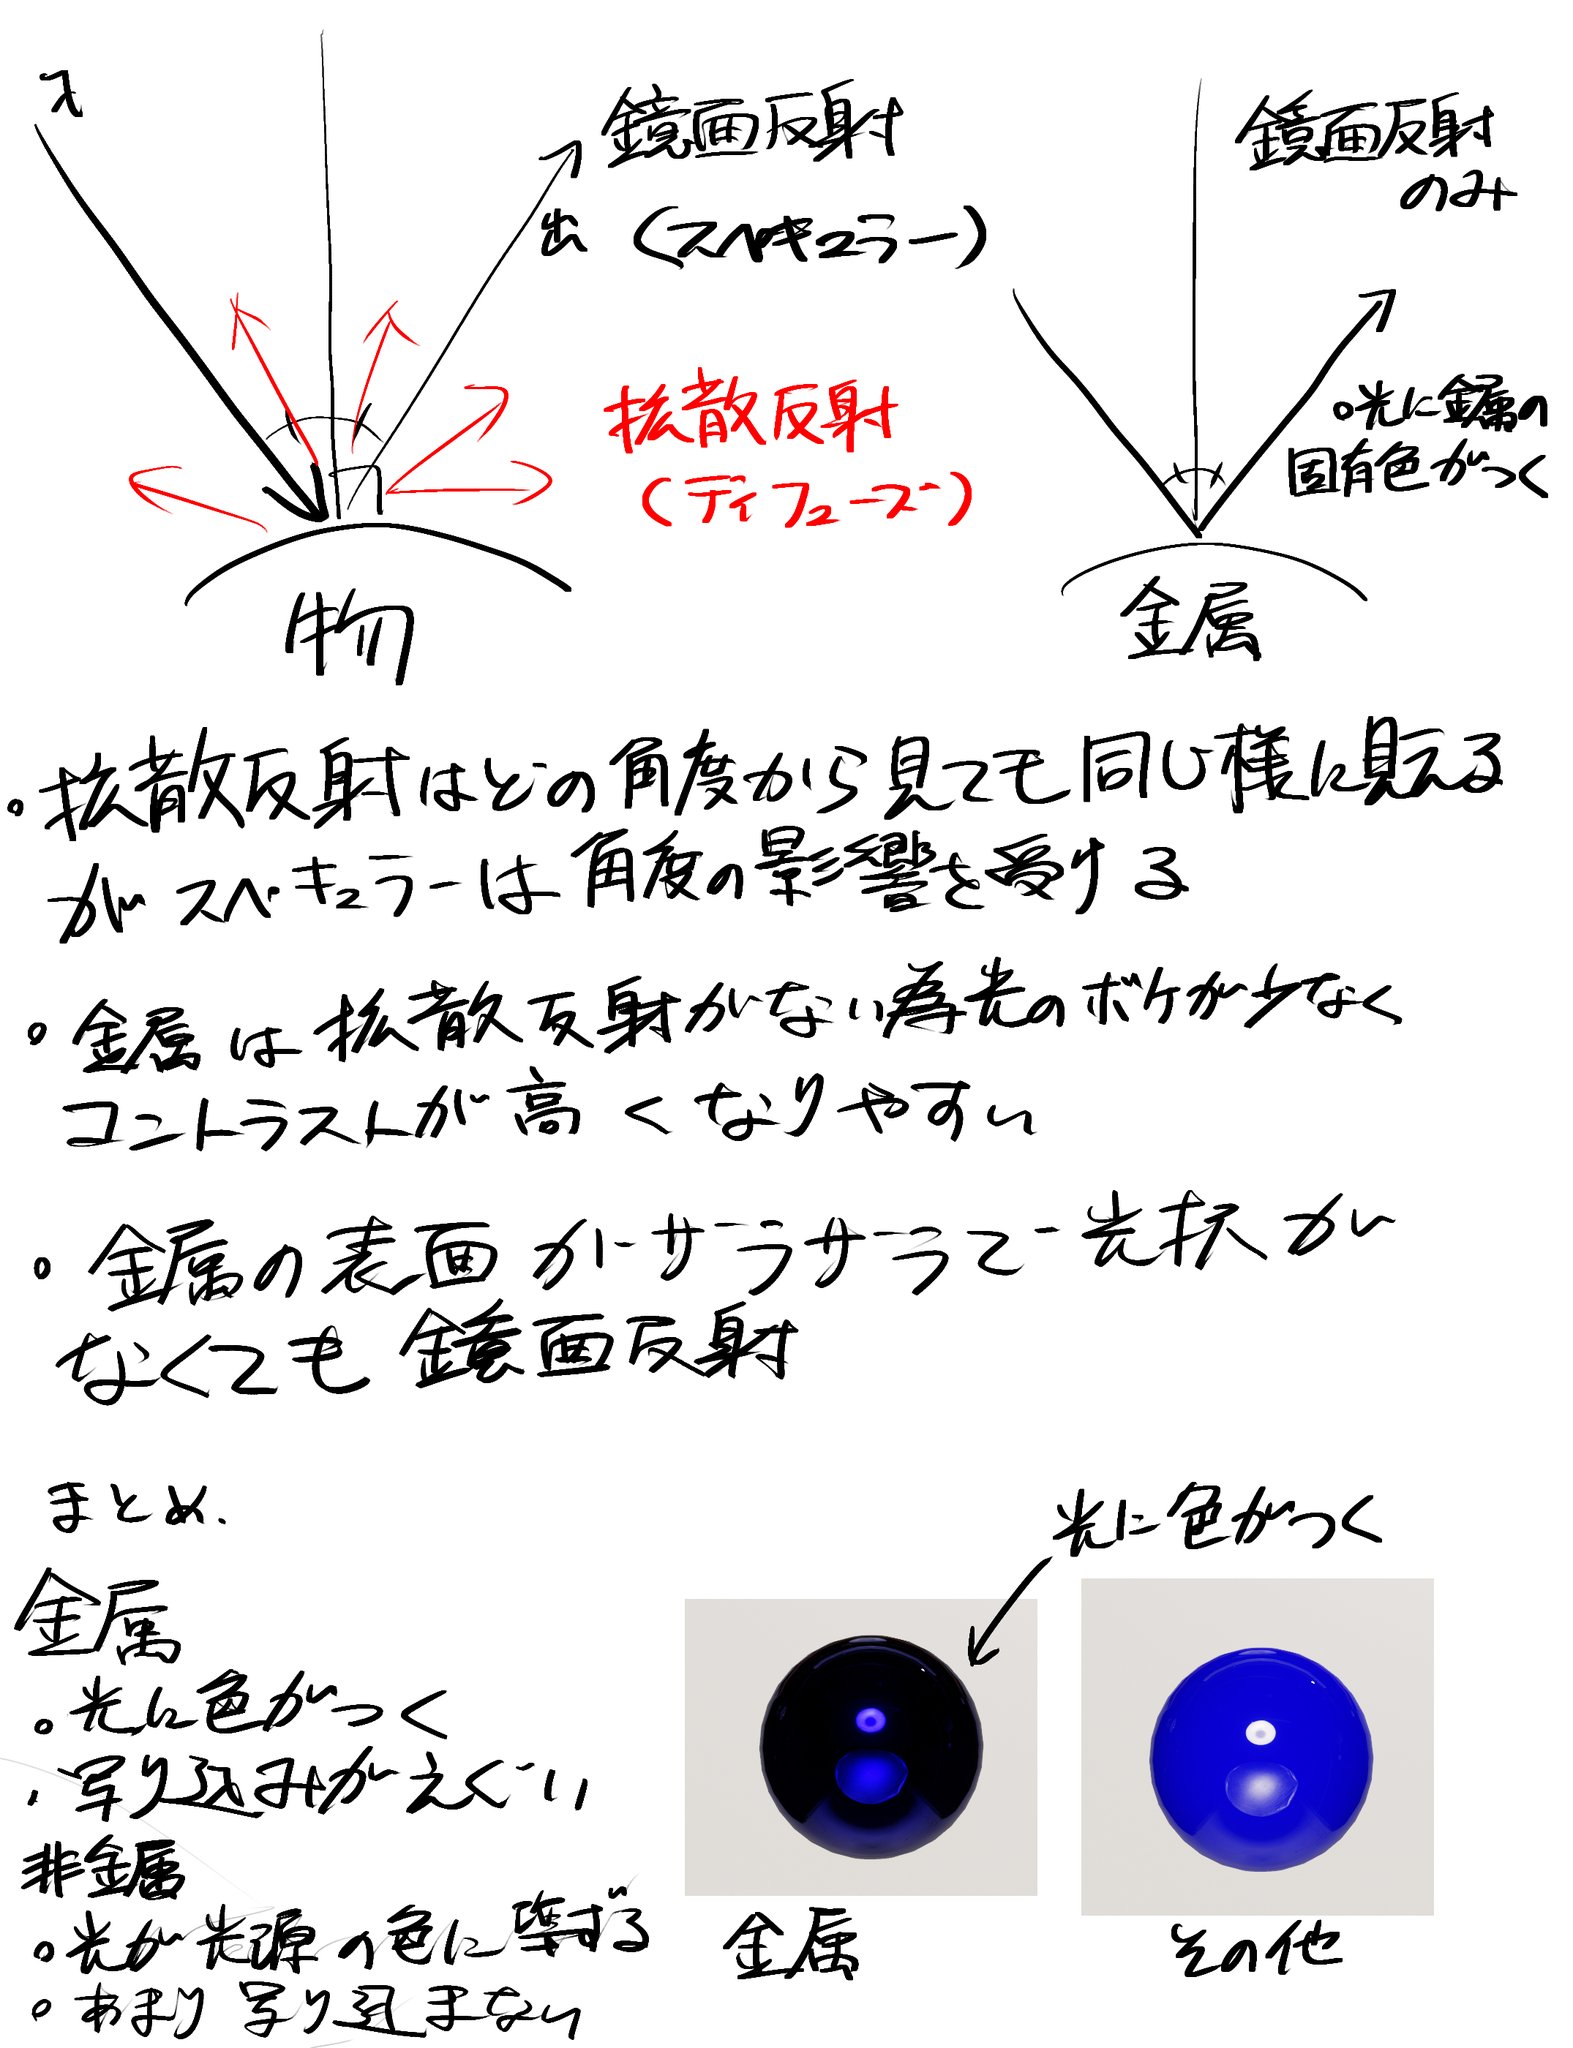 入
鏡面反射
出 (スペキュラー)
拡散反射
(ディフューズ)
物
鏡面反射
のみ
。光に金属の
固有色がつく
金属
・拡散反射はどの角度から見ても同じ様に見える
がスペキュラーは角度の影響を受ける
・金属は拡散反射がない為光のボケが少なく
コントラストが高くなりやすい
・金属の表面がザラザラで光沢が
なくても鏡面反射
まとめ.
金属
・光に色がつく
・写り込みがえぐい
非金属
・光が光源の色に準ずる
・あまり写り込まない
光に色がつく
金属
その他